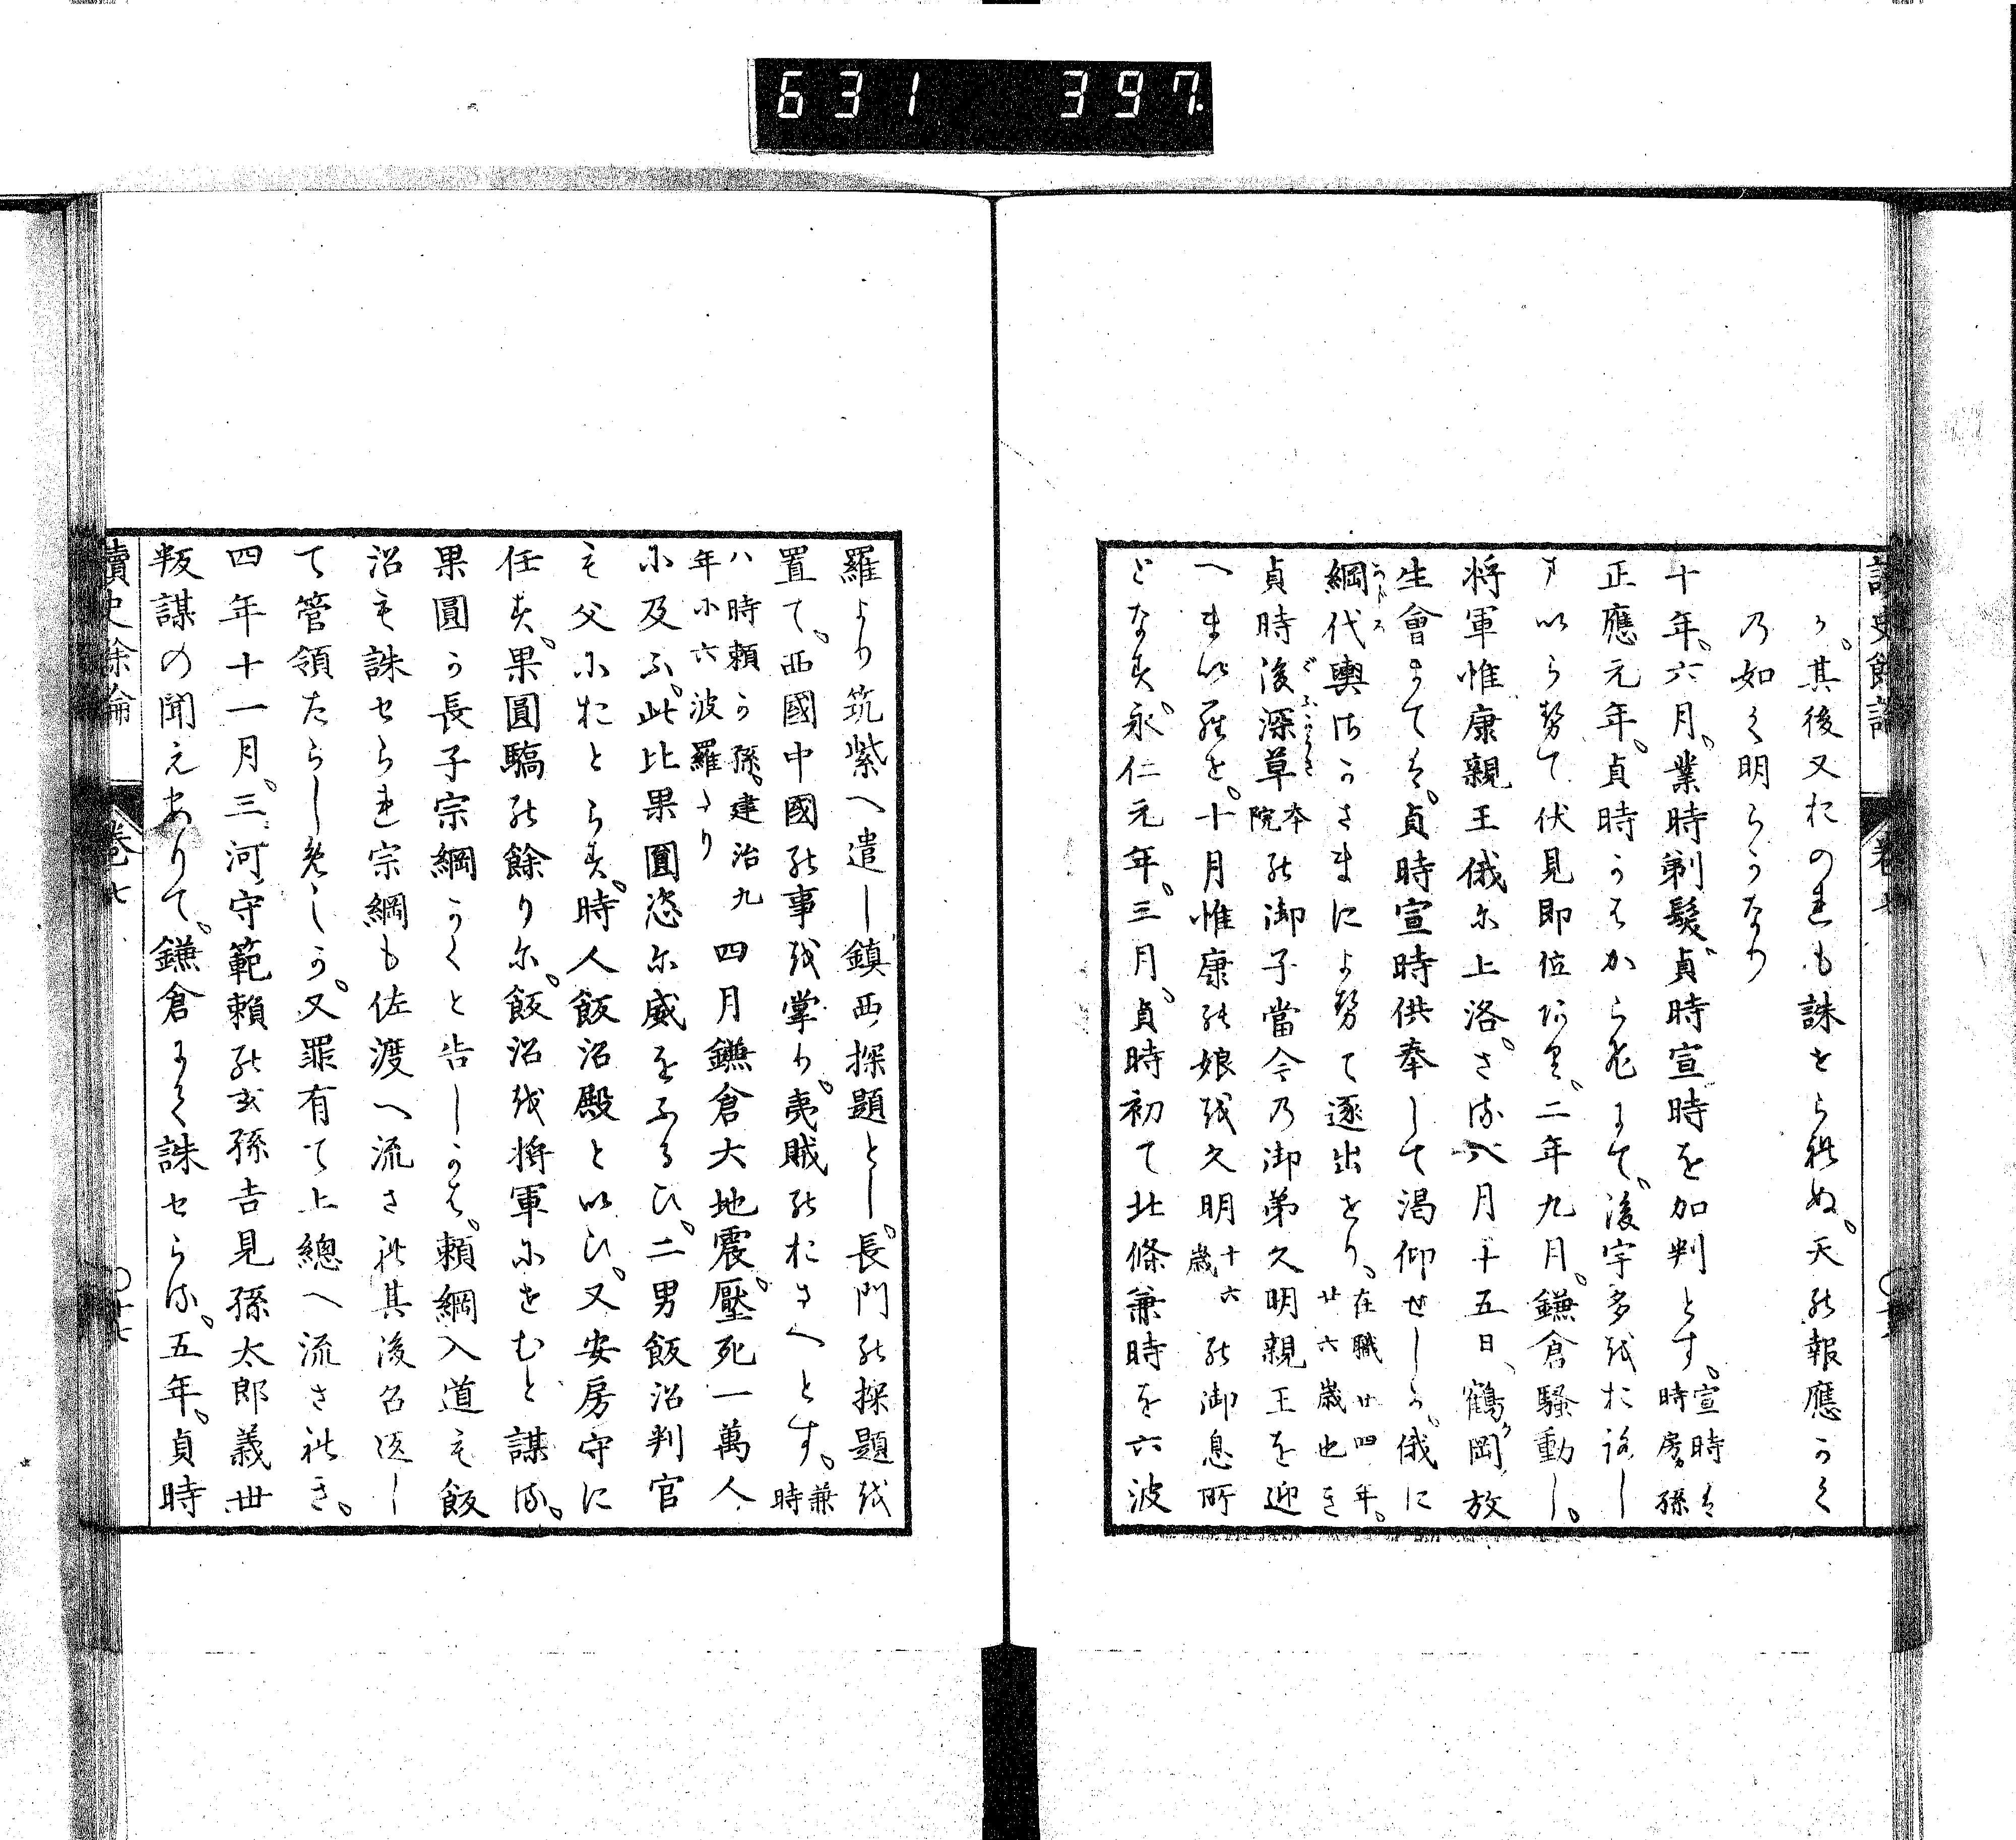 631 397
讀史餘論 卷七
か。其後又おのれも誅せられぬ。天の報應かく
の如く明らかなり
十年。六月。業時剃髮貞時宣時を加判とす。宣時は時房孫
正應元年。貞時かはからひにて。後宇多をおろし
まいらせて伏見即位あり。二年九月。鎌倉騷動し。
将軍惟康親王俄に上洛。さる八月十五日、鶴岡放
生會まては。貞時宣時供奉して渇仰せしか。俄に
網代輿にさかさまによせて逐出せり。在職廿四年。廿六歳也き
貞時後深草本院の御子當今の御弟久明親王を迎
へまいらせ。十月惟康の娘を久明十六歳の御息所
となす。永仁元年。三月。貞時初て北條兼時を六波
羅より筑紫へ遣し鎮西探題とし。長門の探題を
置て。西國中國の事を掌り。夷賊のおさへとす。兼時
ハ時頼か孫。建治九年に六波羅より四月鎌倉大地震。壓死一萬人
に及ふ。此比果圓恣に威をふるひ。二男飯沼判官
も父におとらす。時人飯沼殿といひ。又安房守に
任す。果圓驕の餘りに。飯沼を将軍にせむと謀る。
果圓か長子宗綱かくと告しかは。頼綱入道も飯
沼も誅せられ宗綱も佐渡へ流され其後召返し
て管領たらしめしか。又罪有て上總へ流されき。
四年十一月。三河守範頼の玄孫吉見孫太郎義世
叛謀の聞えありて。鎌倉にて誅せらる。五年。貞時
讀史餘論 卷七 〇廿七